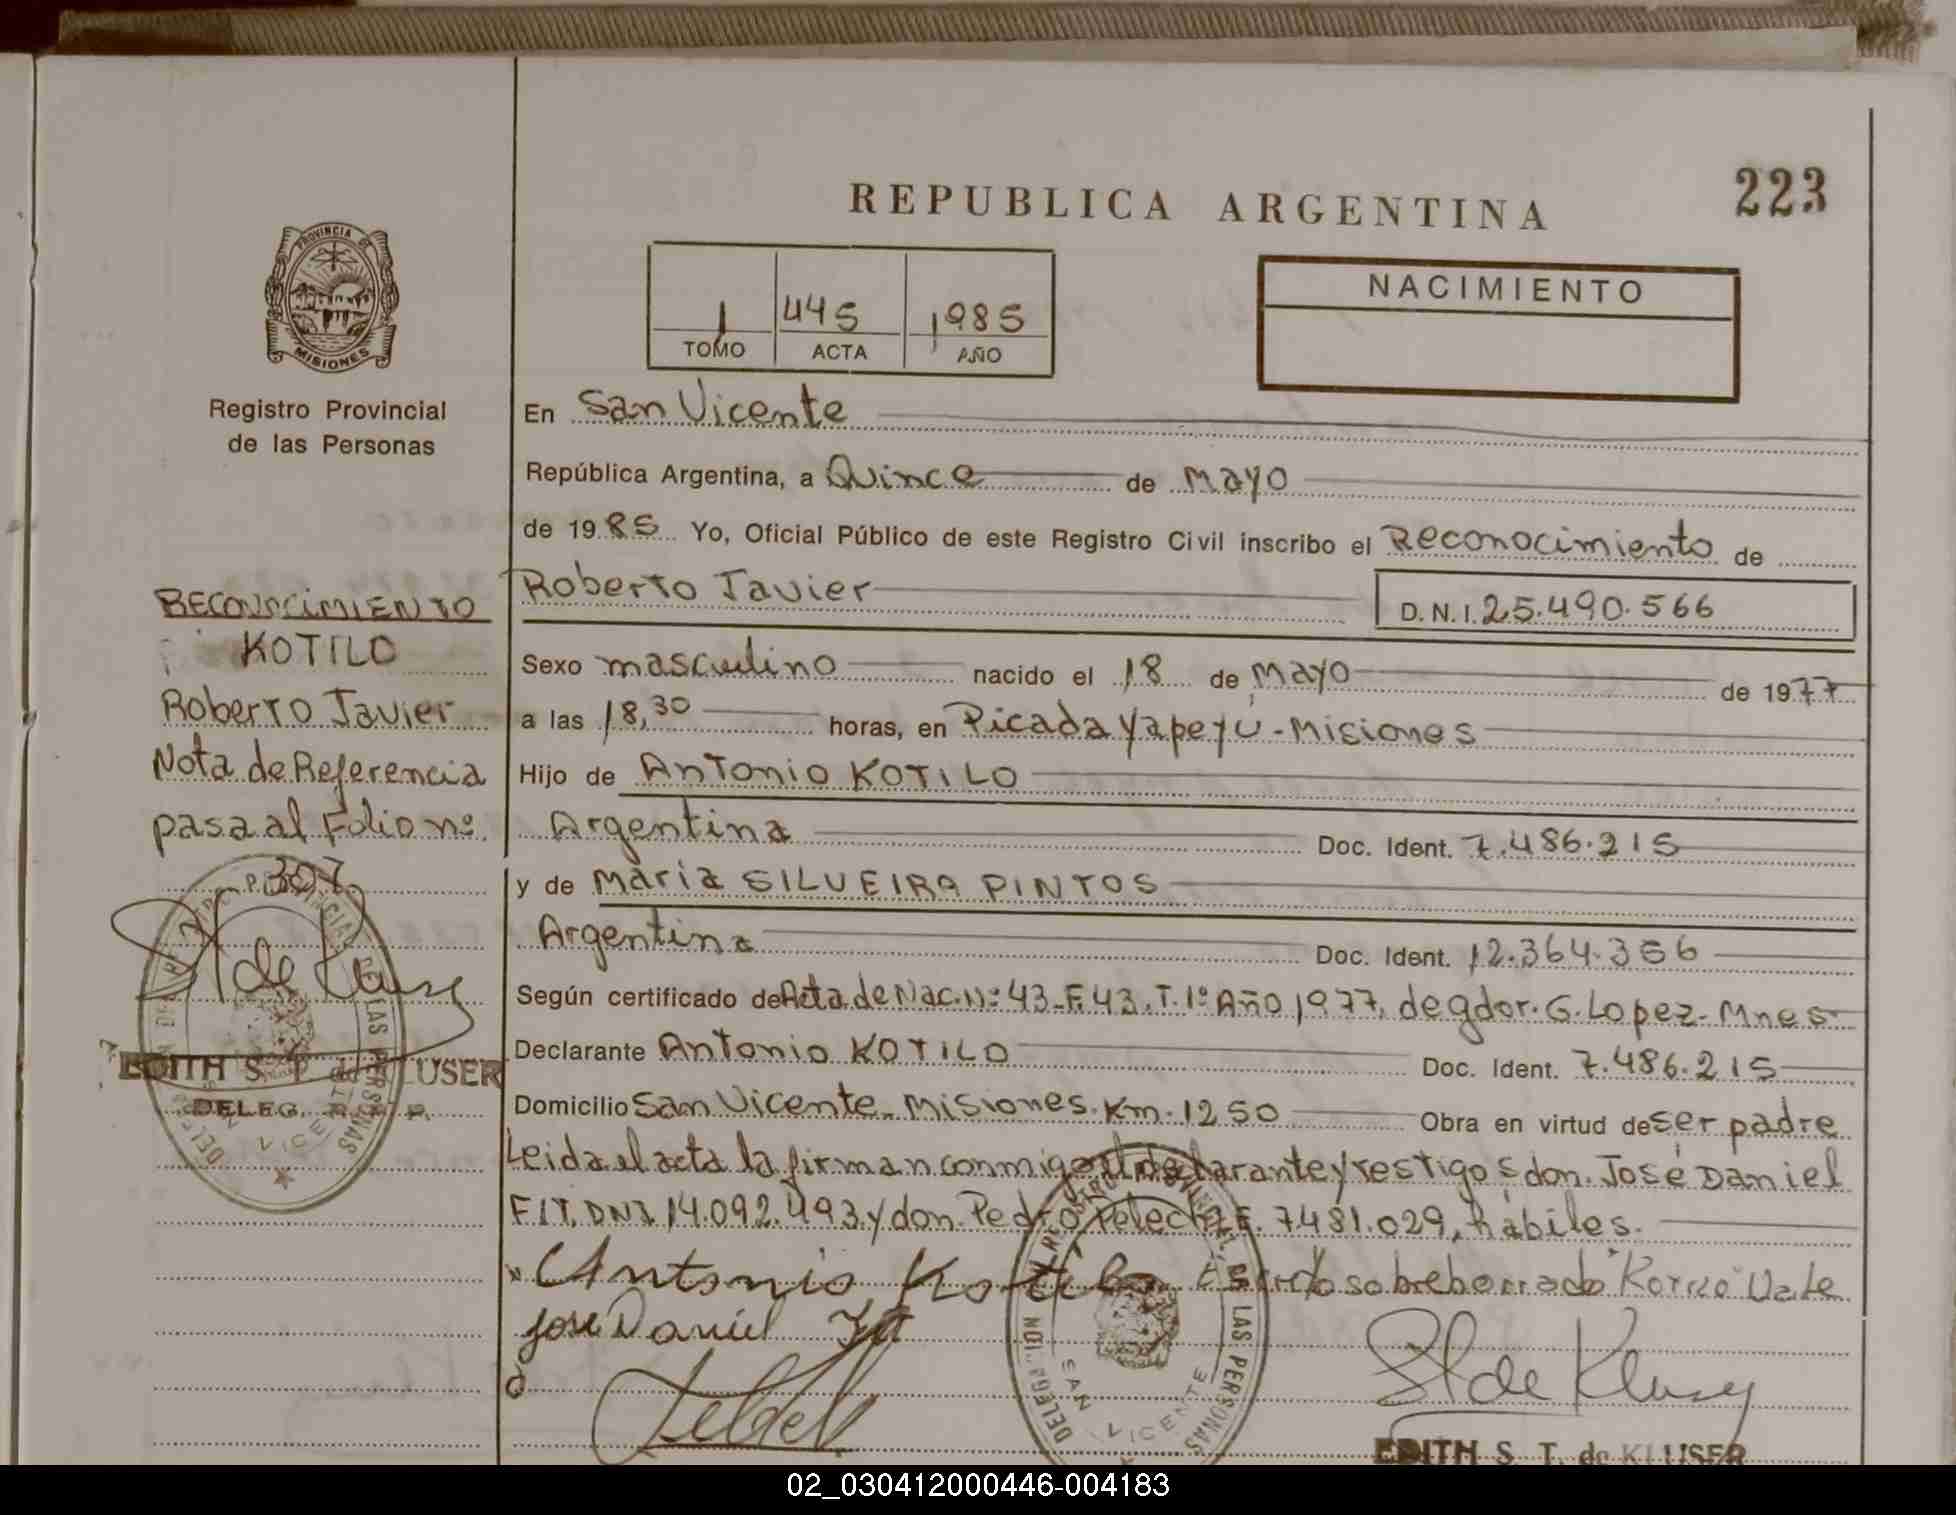 REPUBLICA ARGENTINA
223
PROVINCIA DE
MISIONES
Registro Provincial
de las Personas
1 445 1985
TOMO ACTA AÑO
NACIMIENTO
En San Vicente
República Argentina, a Quince de Mayo
de 1985 Yo, Oficial Público de este Registro Civil inscribo el Reconocimiento de
Roberto Javier D.N.I. 25.490.566
Sexo masculino nacido el 18 de Mayo de 1977
a las 18,30 horas, en Picada Yapeyú - Misiones
Hijo de Antonio KOTILO
Argentina Doc. Ident. 7.486.215
y de Maria SILVEIRA PINTOS
Argentina Doc. Ident. 12.364.356
Según certificado de Acta de Nac. Nº 43-F.43. T. 1º Año 1977, de gdor. G. Lopez - Mnes
Declarante Antonio KOTILO Doc. Ident. 7.486.215
Domicilio San Vicente - Misiones. Km. 1250 Obra en virtud de ser padre
Leida el acta la firman conmigo el declarante y testigos don. José Daniel
FIT. DNI. 14.092.493 y don. Pedro 7.481.029, habiles.
Antonio Kotilo sobreborrado "KOTILO" Vale
José Daniel Fit
St de Kluser
EDITH S. T. de KLUSER
RECONOCIMIENTO
KOTILO
Roberto Javier
Nota de Referencia
pasa al Folio nº
307
St de Kluser
EDITH S. T. KLUSER
DELEG. R. P. P.
DE LAS PERSONAS
SAN VICENTE
DE LAS PERSONAS
SAN VICENTE
02_030412000446-004183